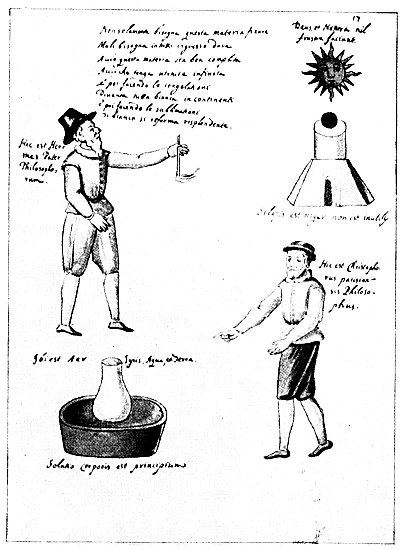 17
Non solamente bisogna questa materia fixare
Mali bisogna in tutti ingresso dare
Accio questa materia sia ben complita
Accio che tenga infinita
E poi facendo le congelationi
Diventa tutta bianca in continenti
E poi facendo le sublimationi
Di bianca si reforma risplendente.
Deus, et Natura nil
frustra faciunt.
Hic est Her-
mes Pater
Philosopho-
rum.
est Niger non est inutilis
Hic est Christopho-
rus parisien-
sis Philoso-
phus.
Ibi est Aer Ignis, Aqua, et Terra.
Solutio corporis est principium